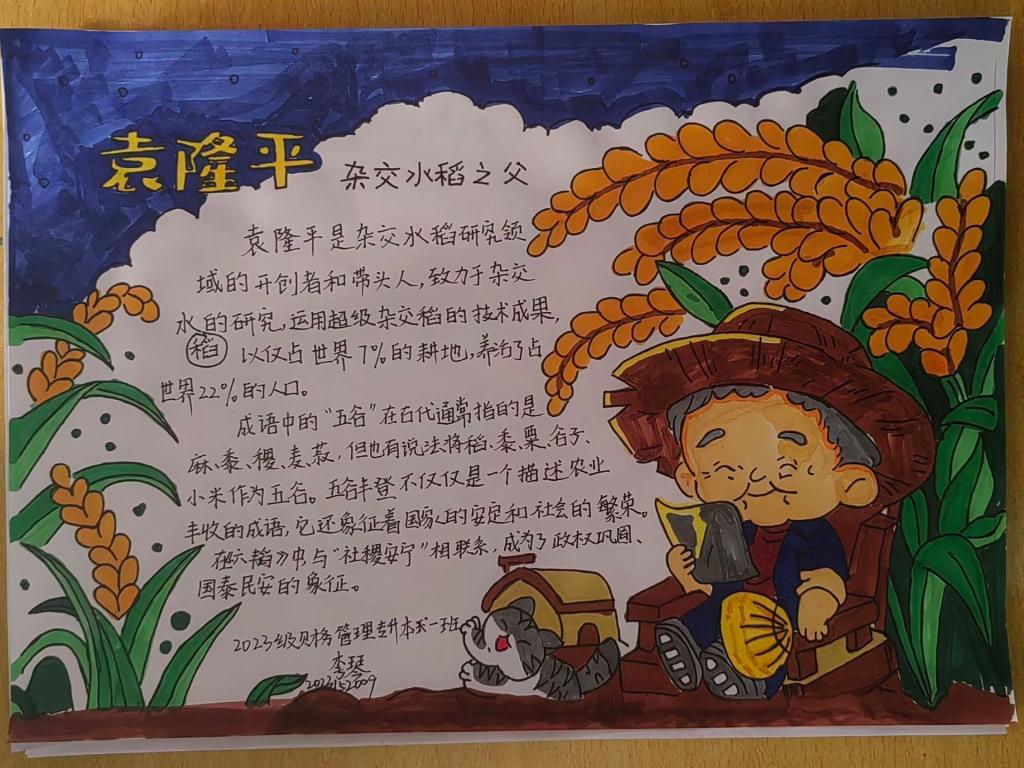 袁隆平 杂交水稻之父
袁隆平是杂交水稻研究领
域的开创者和带头人，致力于杂交
水的研究，运用超级杂交稻的技术成果，
稻 以仅占世界7%的耕地，养活了占
世界22%的人口。
成语中的“五谷”在古代通常指的是
麻、黍、稷、麦、菽，但也有说法将稻、黍、粟、谷子、
小米作为五谷。五谷丰登不仅仅是一个描述农业
丰收的成语，它还象征着国家的安定和社会的繁荣。
在 稻》中，与“社稷安宁”相联系，成为了政权巩固、
国泰民安的象征。
2023级财务管理专升本 一班
李琴